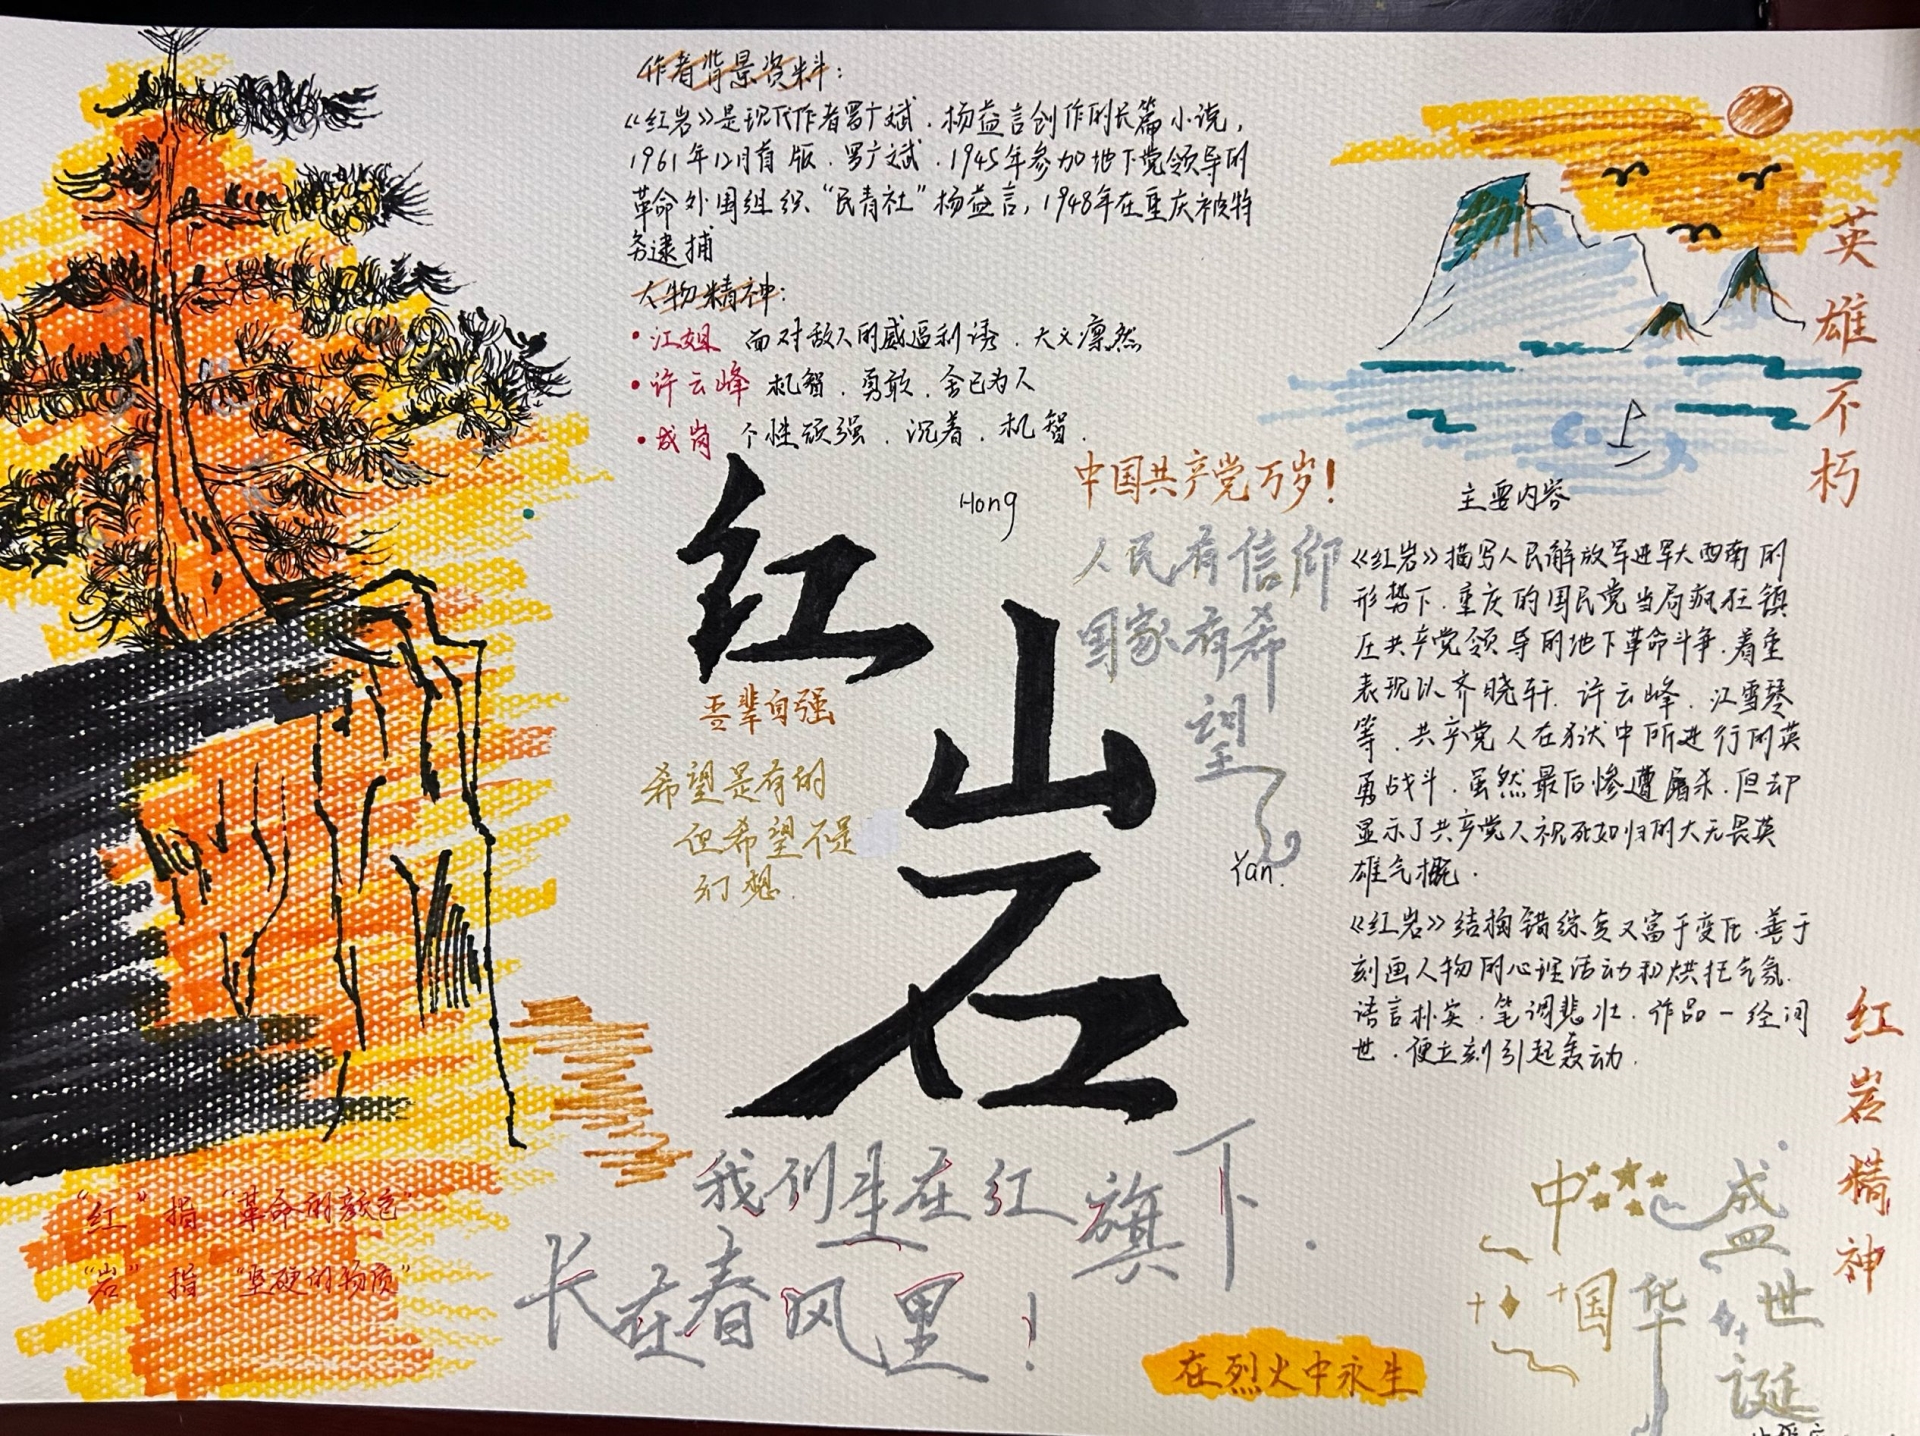 作者背景资料：
《红岩》是现代作者罗广斌．杨益言创作的长篇小说，
1961年12月首版．罗广斌．1945年参加地下党领导的
革命外围组织“民青社”杨益言，1948年在重庆被特
务逮捕
人物精神：
•江姐 面对敌人的威逼利诱．大义凛然
•许云峰 机智．勇敢．舍已为人
•成岗 个性顽强．沉着．机智．
红
Hong
岩
Yan.
中国共产党万岁！
人民有信仰
国家有希
望
吾辈自强
希望是有的
但希望不是
幻想.
英雄不朽
主要内容
《红岩》描写人民解放军进军大西南的
形势下．重庆的国民党当局疯狂镇
压共产党领导的地下革命斗争．着重
表现以齐晓轩．许云峰．江雪琴
等．共产党人在狱中所进行的英
勇战斗．虽然最后惨遭屠杀．但却
显示了共产党人视死如归的大无畏英
雄气概．
《红岩》结构错综复又富于变化．善于
刻画人物的心理活动和烘托气氛．
语言朴实．笔调悲壮．作品一经问
世．便立刻引起轰动．
红岩精神
“红”指“革命的颜色”
“岩”指“坚硬的物质”
我们生在红旗下．
长在春风里！
在烈火中永生
中国
华
盛世
诞